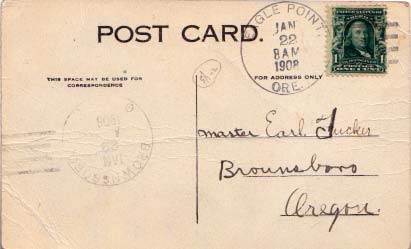 POST CARD.
THIS SPACE MAY BE USED FOR
CORRESPONDENCE
FOR ADDRESS ONLY
EAGLE POINT,
JAN
22
8AM
1908
ORE.
1
master Earl Tucker
Brounsboro
Oregon.
BROWNSBORO
JAN
22
A
1908
O